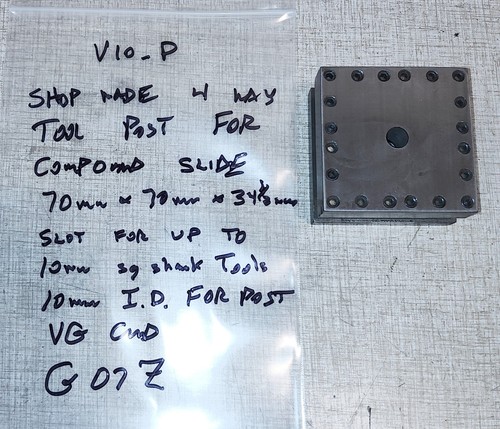 V10-P
SHOP MADE 4 WAY
TOOL POST FOR
COMPOUND SLIDE
70mm x 70mm x 34 mm
SLOT FOR UP TO
10mm sq shank Tools
10mm I.D. FOR POST
VG CND
G 07 Z